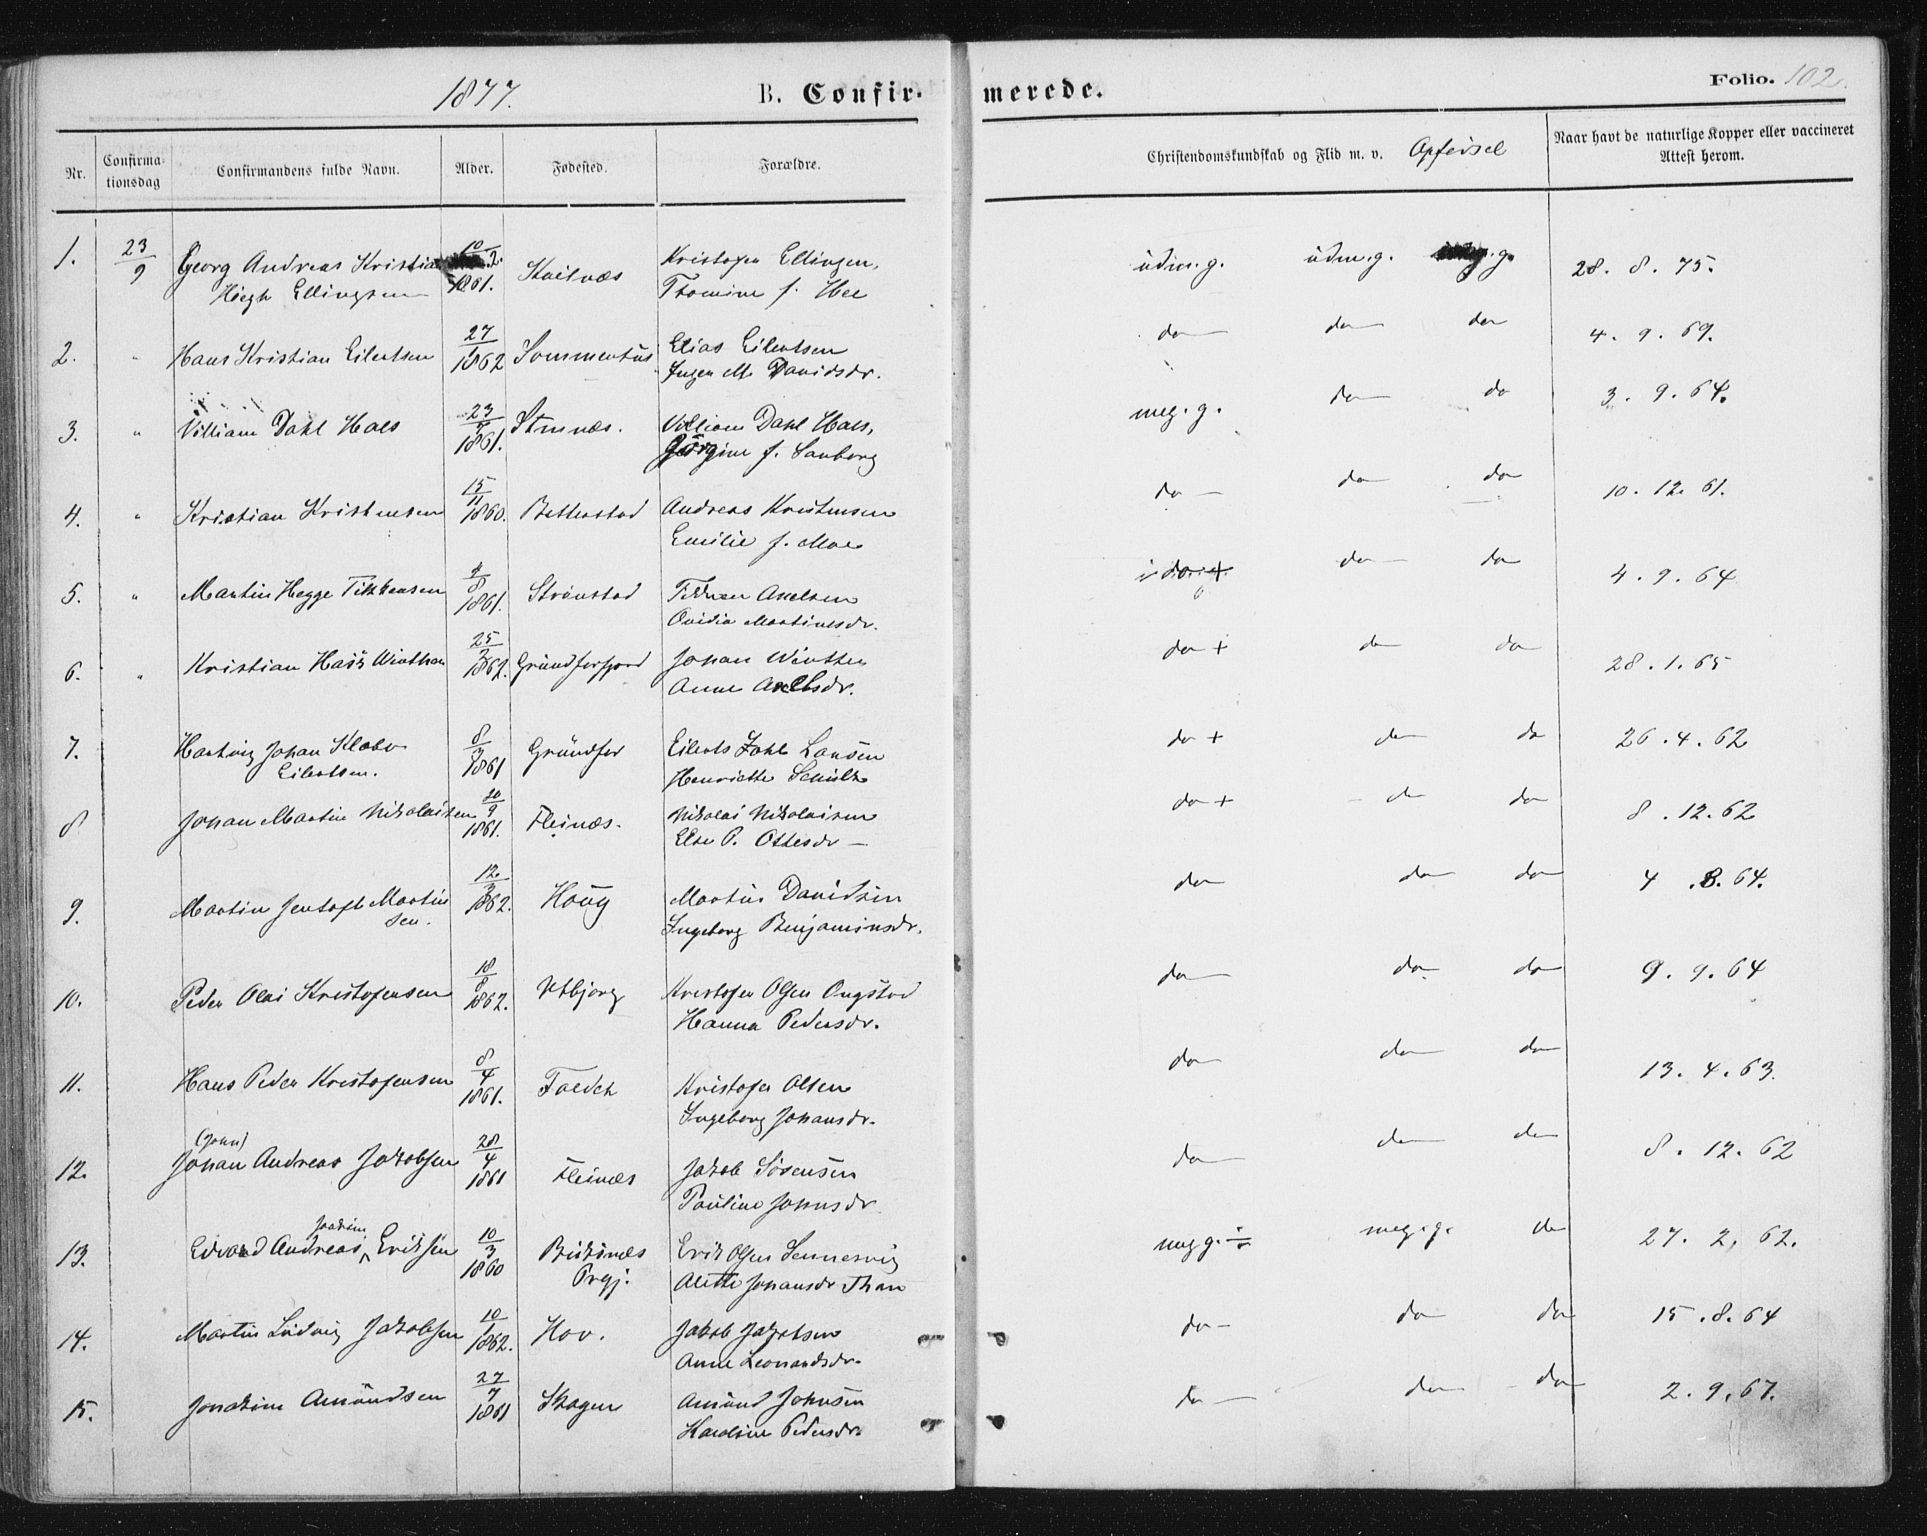 1877. B. Confirmerede. Folio. 102.
Nr. Confirmationsdag Confirmandens fulde Navn. Alder. Fødested. Forældre. Christendomskundskab og Flid m. v. Opførsel Naar havt de naturlige Kopper eller vaccineret Attest herom.
1. 23/9 Georg Andreas Kristian 10/2. 1861. Kristofer Ellingsen, üdm.g. üdm.g. 28. 8. 75.
Høegh Ellingsen Thomine f. Hee
2. " Hans Kristian Eilertsen 27/ 1862 Elias Eilertsen do do do 4. 9. 69.
Inger M. Davidsdr.
3. " Villiam Dahl Hals 23/ 1861. Stennæs. Villiam Dahl Hals, meg. g. do do 3. 9. 64.
Görgine f. Sanborg
4. " Kristian Kristensen 15/11 1860. Andreas Kristensen do do do 10. 12. 61.
Emilie f. Moe
5. " Martin Hegge 4/8 1861. Strønstad Axelsen do do 4. 9. 64
Ovidia Martinusdr.
6. " Kristian Winther 25/ 1862. Gründforfjord Johan Winther do + do do 28. 1. 65
Anne Axelsdr.
7. Hartvig Johan Klæbo 8/3 1861 Gründfor Eilert Larsen do + do do 26. 4. 62
Eilertsen. Henriette Schultz
8 Johan Martin Nikolaisen 20/9 1861. Fleinæs. Nikolai Nikolaisen do + do do 8. 12. 62
Else P. Ottesdr
9. Martin Jentoft Martin 12/ 1862. Haüg Martin Davidsen do do do 4. 8. 64.
sen. Ingeborg Benjaminsdr.
10. Peder Olai Kristofersen 18/ 1862. Utbjorg Kristofer Olsen Ongstad do do do 9. 9. 64
Hanna Pedersdr.
11. Hans Peder Kristofersen 8/4 1861. Kristofer Olsen do do do 13. 4. 63.
Ingeborg Johansdr.
(John)
12. Johan Andreas Jakobsen 28/4 1861 Fleinæs Jakob Sörensen do do do 8. 12. 62
Pauline Johnsdr
Joakim
13. Edvard Andreas Eriksen 10/3 1860 Buksnæs Erik Olsen Sennesvig meg g. ÷ meg. g. do 27. 2. 62.
Prgj. Alette Johansdr
14. Martin Ludvig Jakobsen 10/ 1862. Hov. Jakob Jakobsen do do do 15. 8. 64
Anne Leonardsdr.
15. Joakim Amündsen 27/7 1861 Skagen Amünd Johnsen do do do 2. 9. 67.
Karoline Pedersdr.